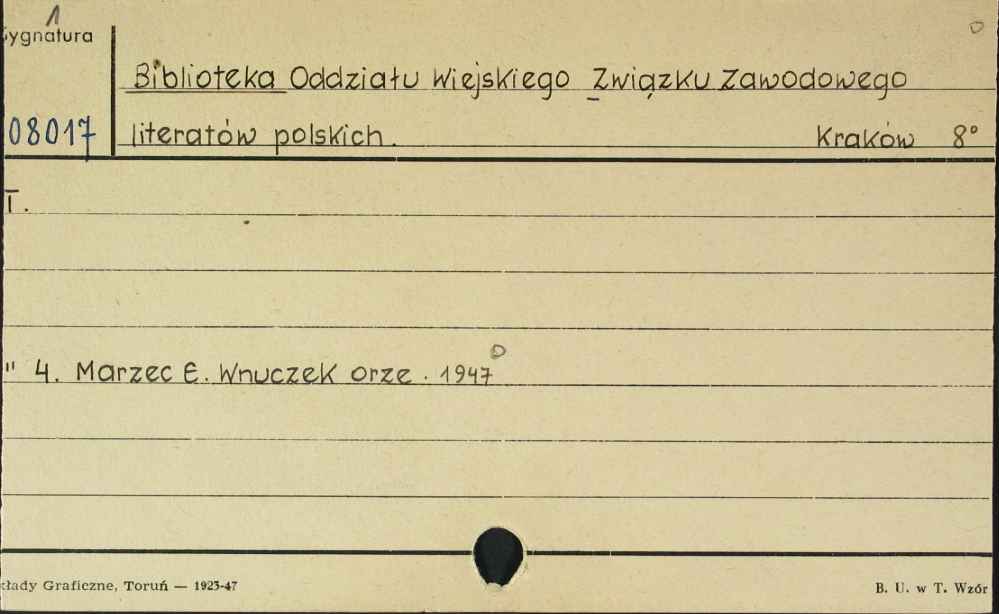 1
Sygnatura
Biblioteka Oddziału Wiejskiego Związku Zawodowego
08017 literatów polskich. Kraków 8°
T.
" 4. Marzec E. Wnuczek orze. 1947
kłady Graficzne, Toruń — 1923-47 B. U. w T. Wzór